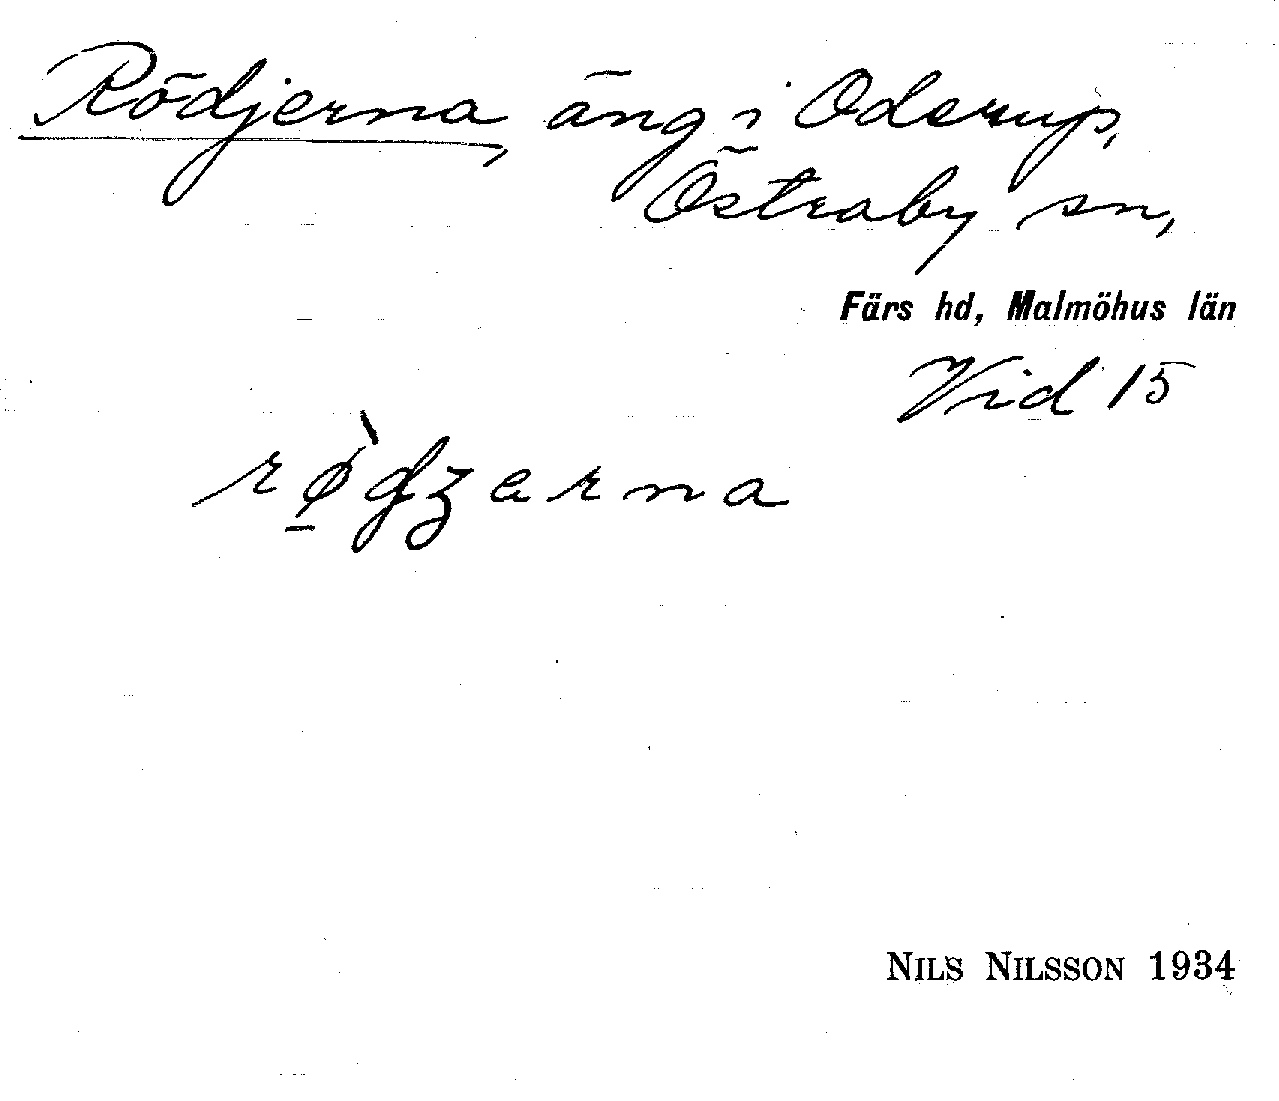 Rödjerna, äng i Oderup,
Östraby sn,
Färs hd, Malmöhus län
Vid 15
rø̠̀dʒerna
NILS NILSSON 1934